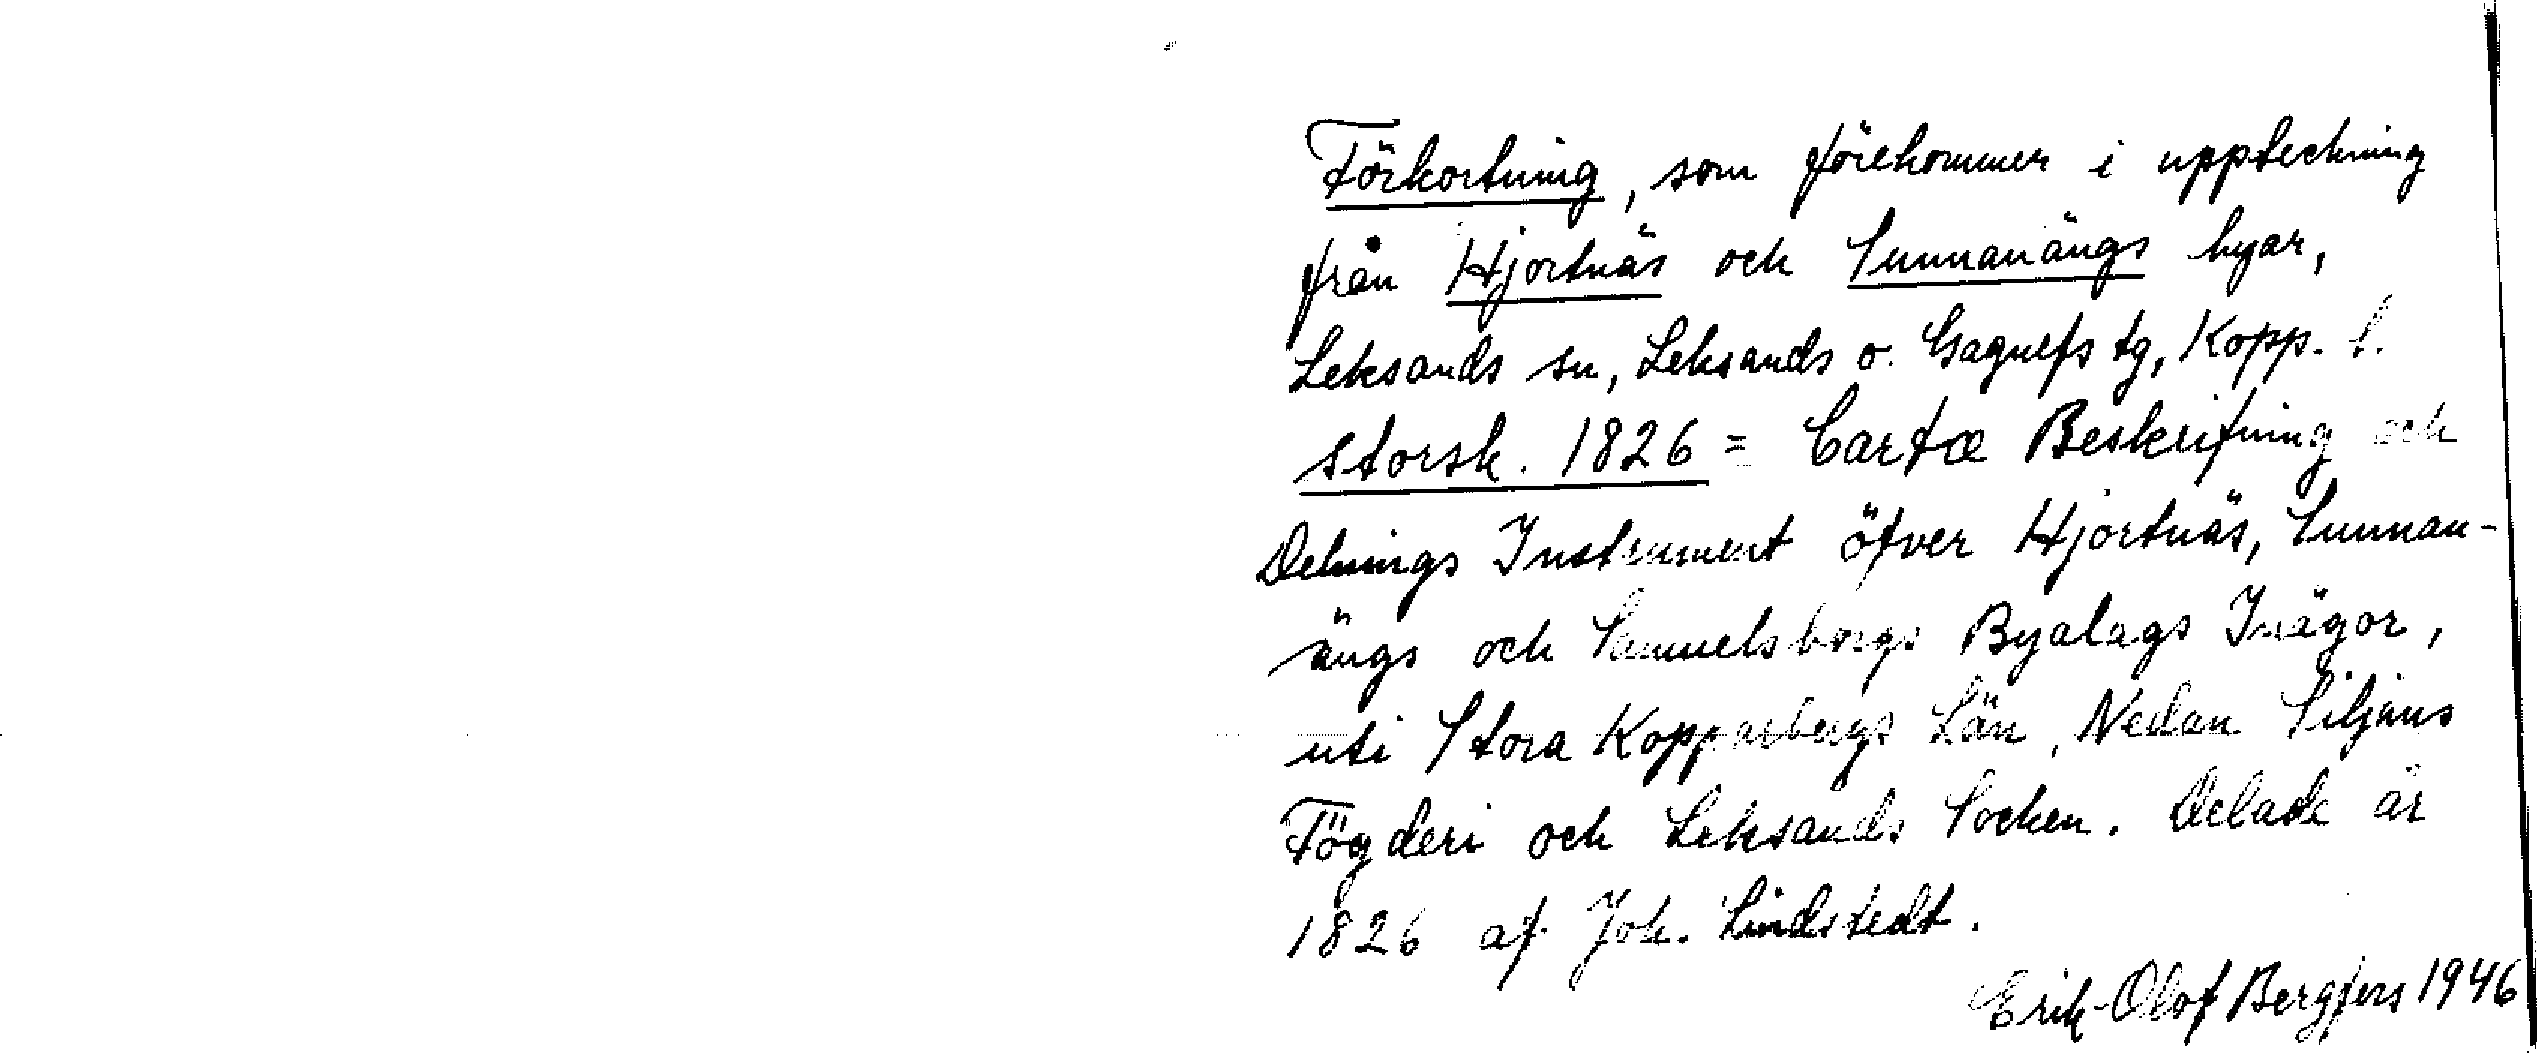 Förkortning, som förekommer i uppteckning
från Hjortnäs och Sunnanängs byar,
Leksands sn, Leksands o. Gagnefs tg, Kopp. l.
storsk. 1826 = Cartæ Beskrifning och
Delnings Instrument öfver Hjortnäs, Sunnan-
ängs och Samuelsborgs Byalags Inägor,
uti Stora Kopparbergs Län, Nedan Siljans
Fögderi och Leksands Socken. Delade år
1826 af Joh. Lindstedt.
Erik-Olof Bergfors 1946